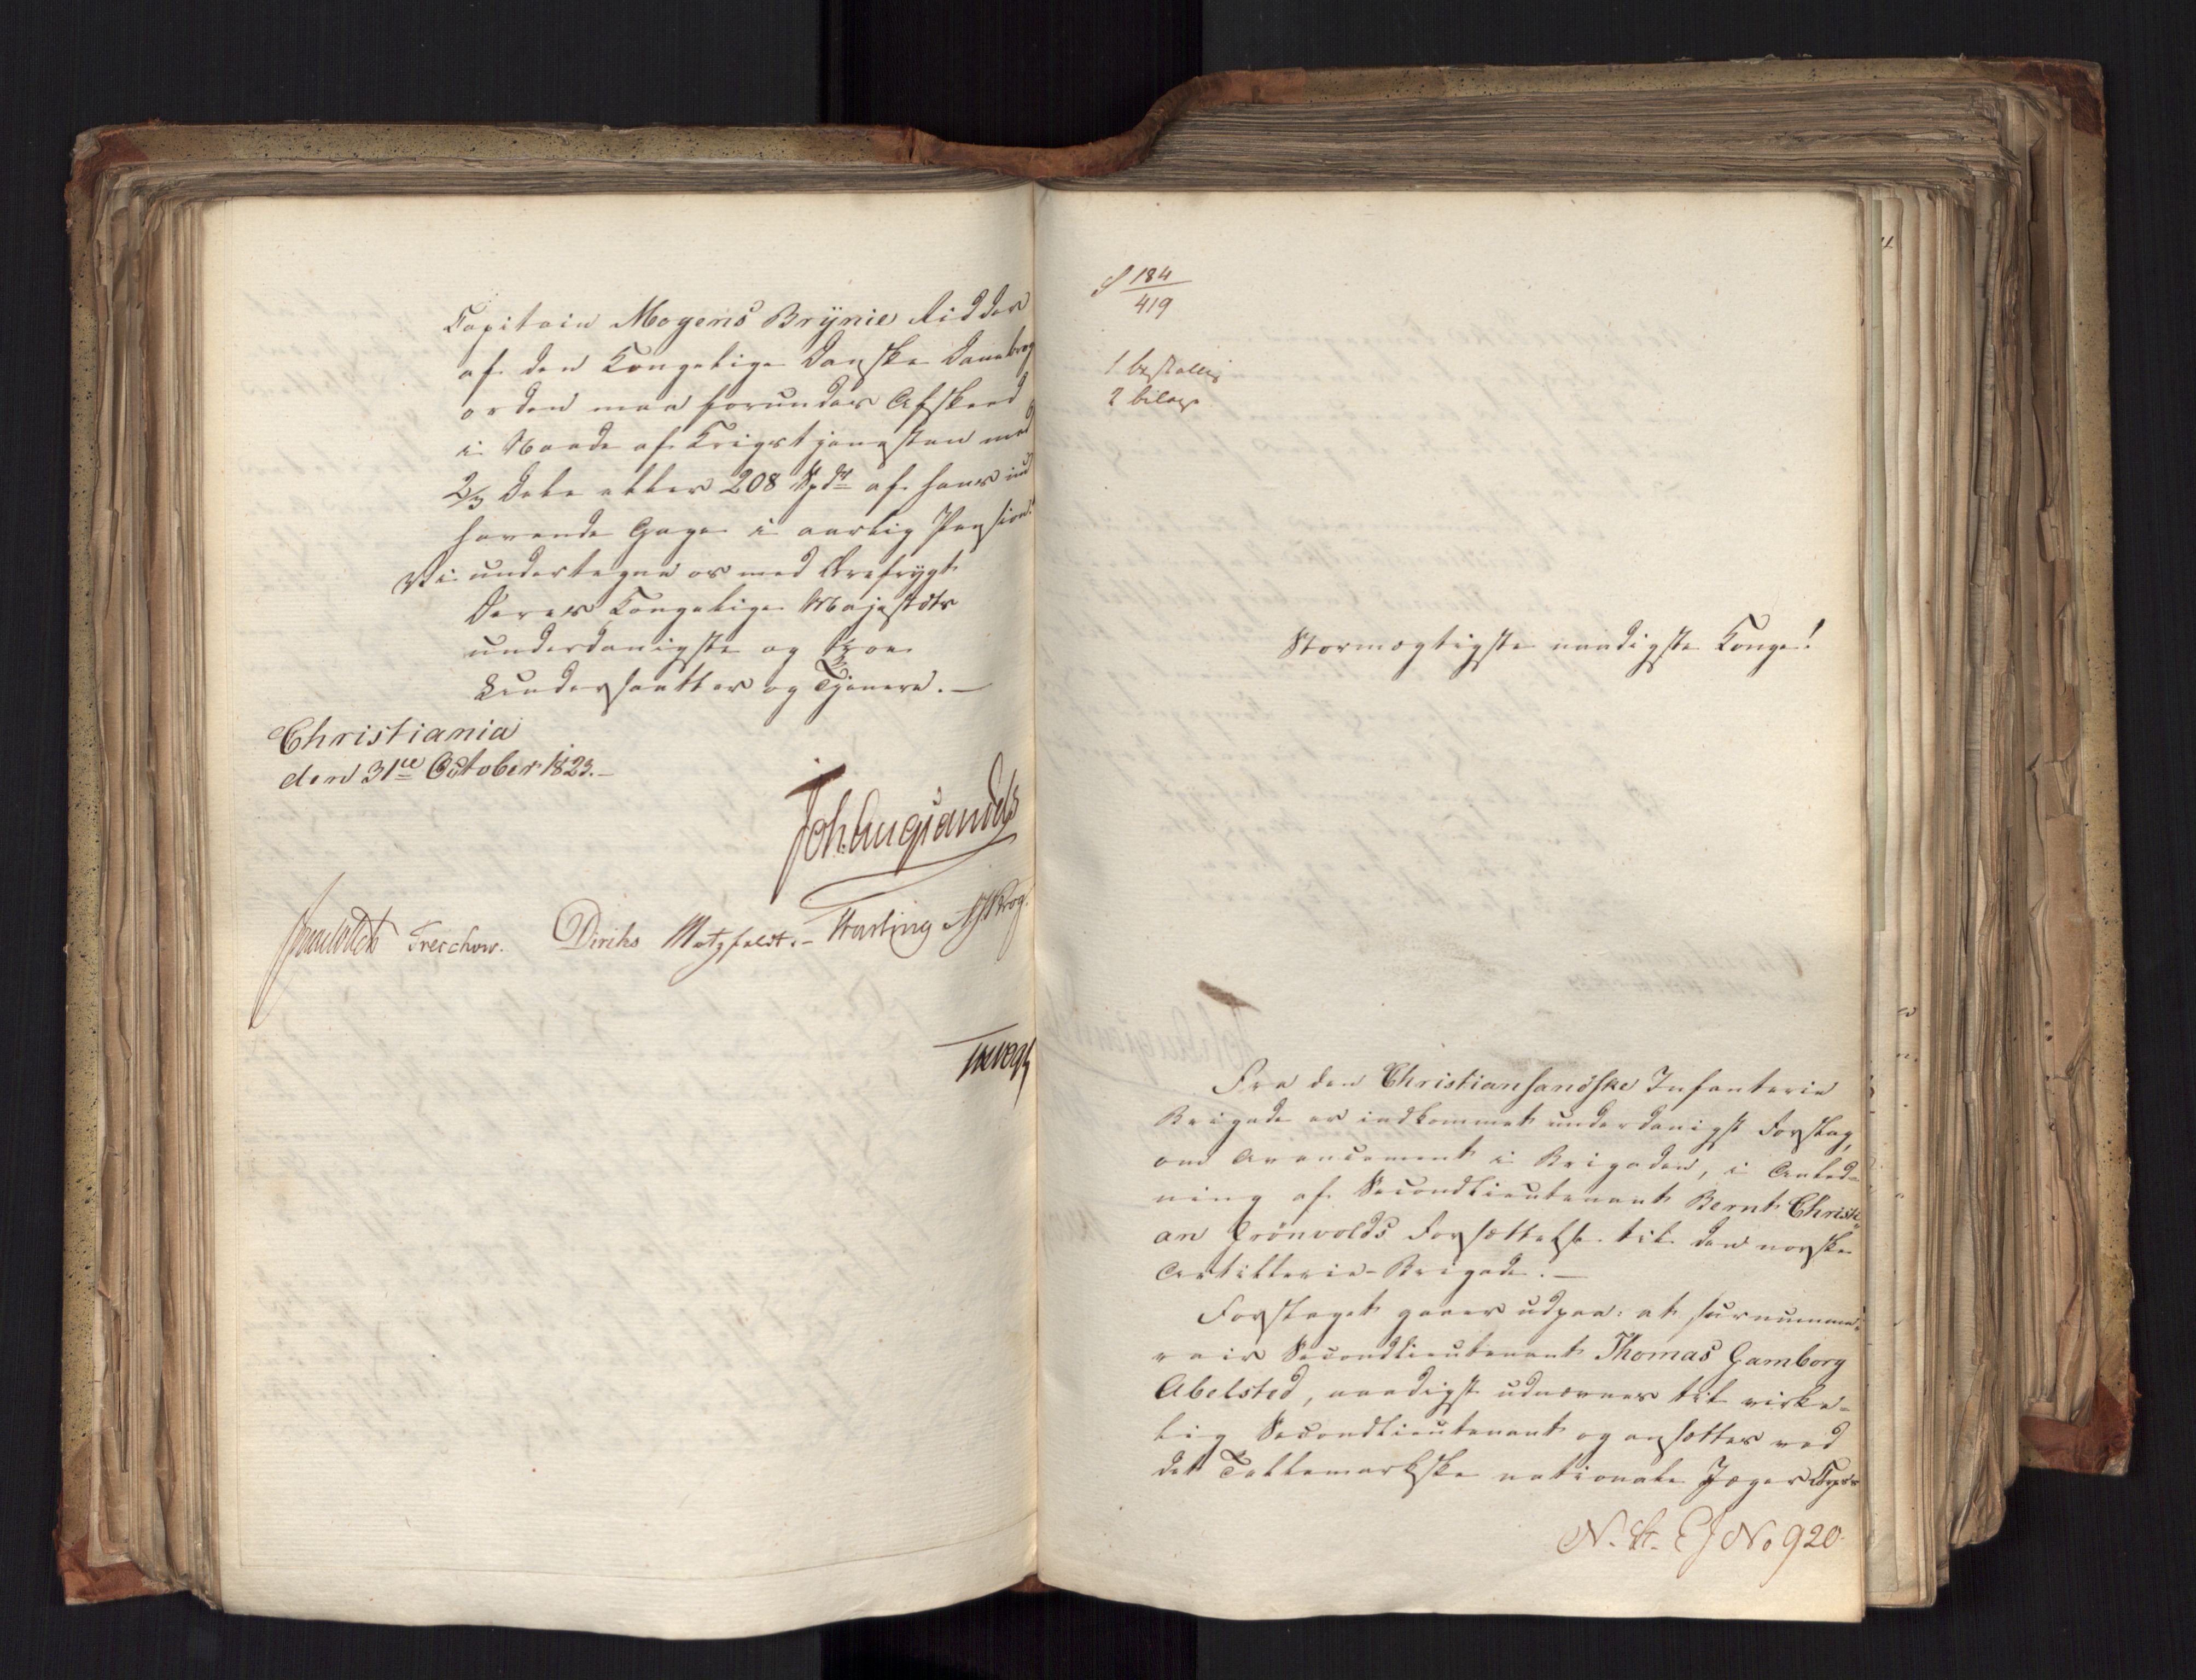 Capitain Mogens Brynie Ridder
af den Kongelige Danske Danebrog
orden maa forundes Afskeed
i Naade af Krigstjenesten med
2/3 Dele eller 208 Spd af hans ind
havende Gage i aarlig Pension.
Vi undertegne os med Ærefrygt
Deres Kongelige Majestæts
underdanigste og troe
Undersaatter og Tjenere.
Christiania
den 31te October 1823.
Joh. Aug. Sandels
Sommerhielm Treschow. Diriks Motzfeldt. Fasting Krog
JHVogt
184
419
1 bestalling
2 bilage
Stormægtigste naadigste Konge!
Fra den Christiansandske Infanterie
Brigade er indkommet underdanigst Forslag,
om Avancement i Brigaden, i Anled-
ning af Secondlieutenant Bernt Christi
an Grönvolds Forsættelse til den norske
Artillerie-Brigade.
Forslaget gaaer udpaa: at surnumme-
rair Secondlieutenant Thomas Gamborg
Abelsted, naadigst udnævnes til virke-
lig Secondlieutenant og ansættes ved
det Tellemarkske nationale JægerCorps
N. St. E J No 920